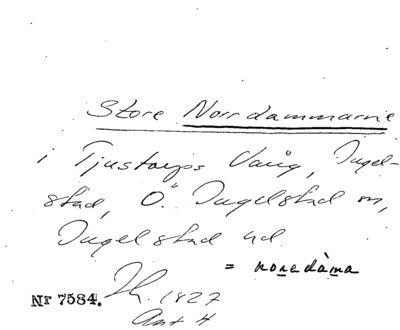 Store Norrdammarne
i Tjustorps Vång, Ingel-
stad, Ö. Ingelstad sn,
Ingelstad hd
= noredàma
Nr 7584. Lh. 1827
Akt 4